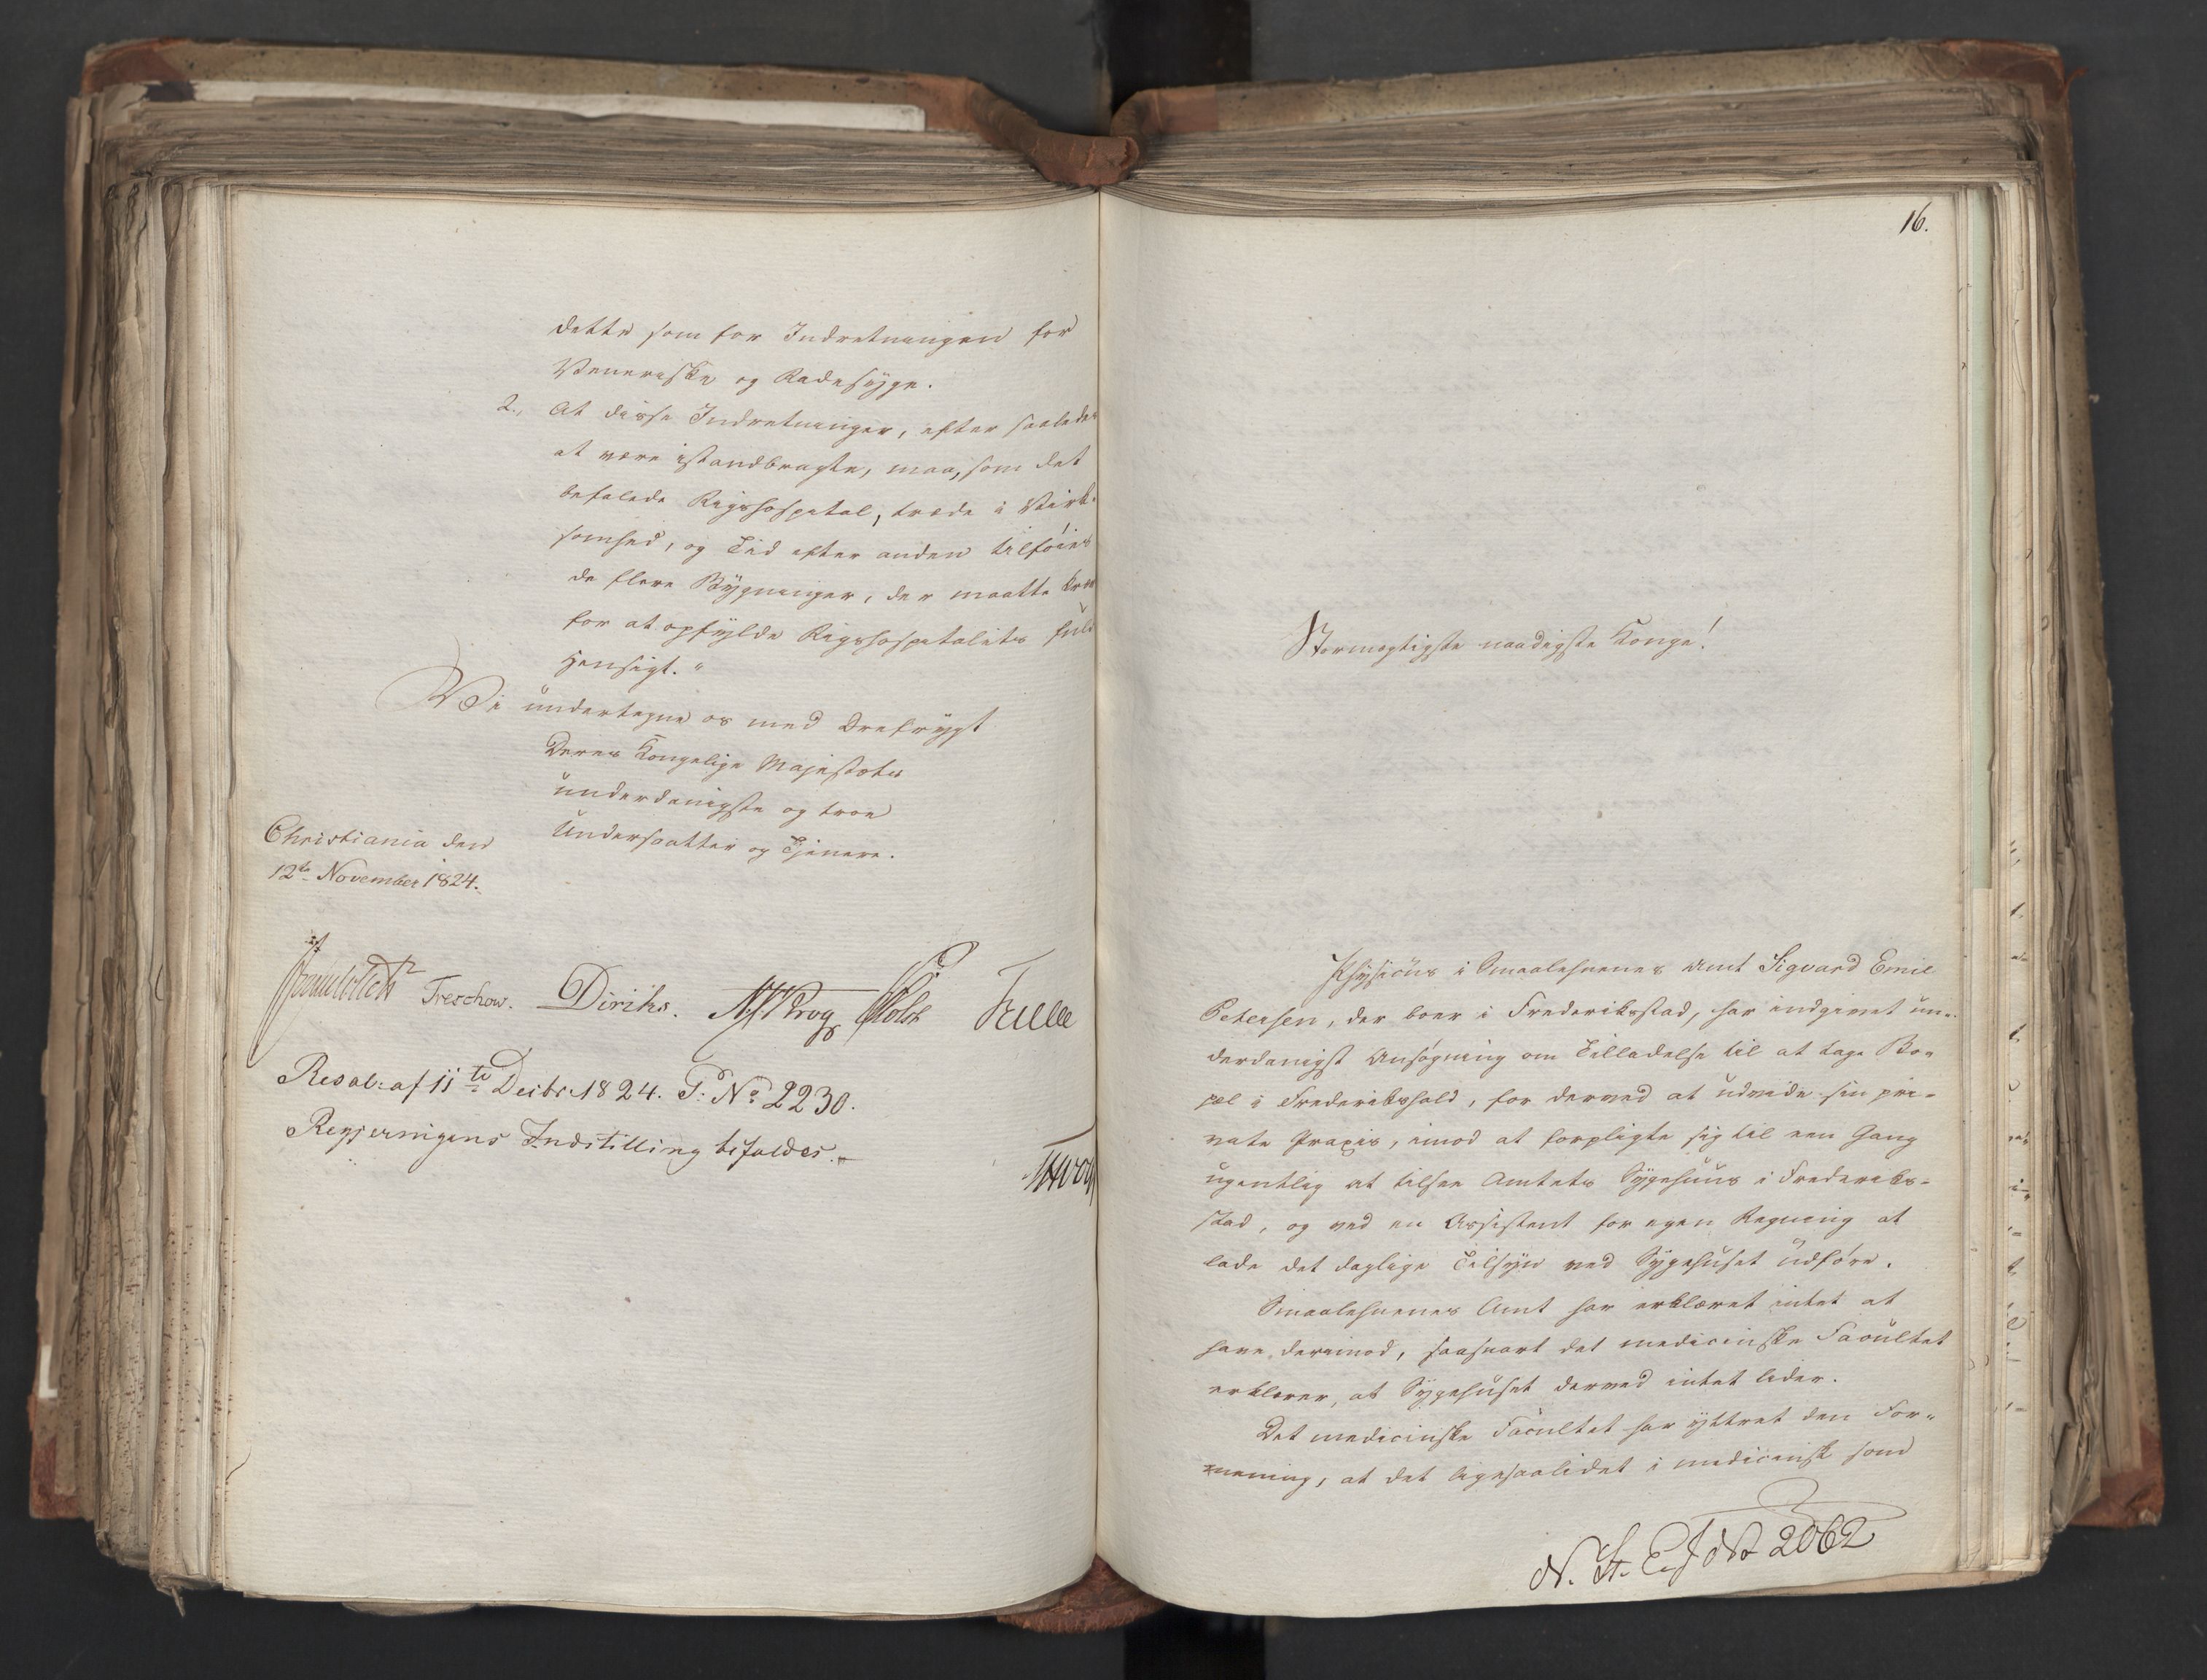 dette som for Indretningen for
Veneriske og Radesyge.
2., At disse Indretninger, efter saaledes
at være istandbragte, maa, som det
befalede Rigshospital, træde i Virk-
somhed, og Tid efter anden tilföies
de flere Bygninger, der maatte
for at opfylde Rigshospitalets
Hensigt."
Vi undertegne os med Ærefrygt
Deres Kongelige Majestæts
underdanigste og troe
Undersaatter og Tjenere.
Christiania den
12te November 1824.
Treschow. Diriks. Krog Holst
Resol: af 11te Decbr 1824. P: No 2230.
Regjeringens Indstilling bifaldes.
16.
Stormægtigste naadigste Konge!
Physicus i Smaalehnenes Amt Sigvard Emil
Petersen, der boer i Frederiksstad, har indgivet un-
derdanigst Ansögning om Tilladelse til at tage Bo-
pæl i Frederikshald, for derved at udvide sin pri-
vate Praxis, imod at forpligte sig til een Gang
ugentlig at tilsee Amtets Sygehuus i Frederiks-
stad, og ved en Assistent for egen Regning at
lade det daglige Tilsyn ved Sygehuset udföre.
Smaalehnenes Amt har erklæret intet at
have derimod, saasnart det medicinske Facultet
erklærer, at Sygehuset derved intet lider.
Det medicinske Facultet har yttret den For-
mening, at det ligesaalidet i medicinsk som
N. St. E. J No 2062